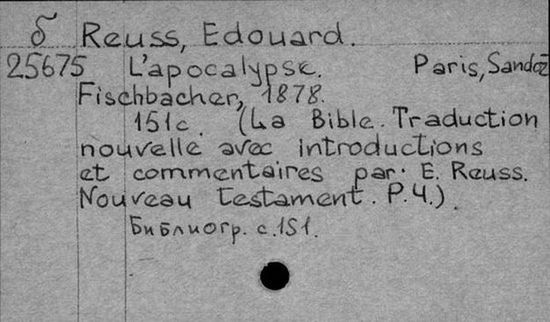 б Reuss, Edouard.
25675 L'apocalypse. Paris, Sandoz
Fischbacher, 1878.
151c. (La Bible. Traduction
nouvelle avec introductions
et commentaires par E. Reuss.
Nouveau testament. P.4.).
Библиогр. с.151.